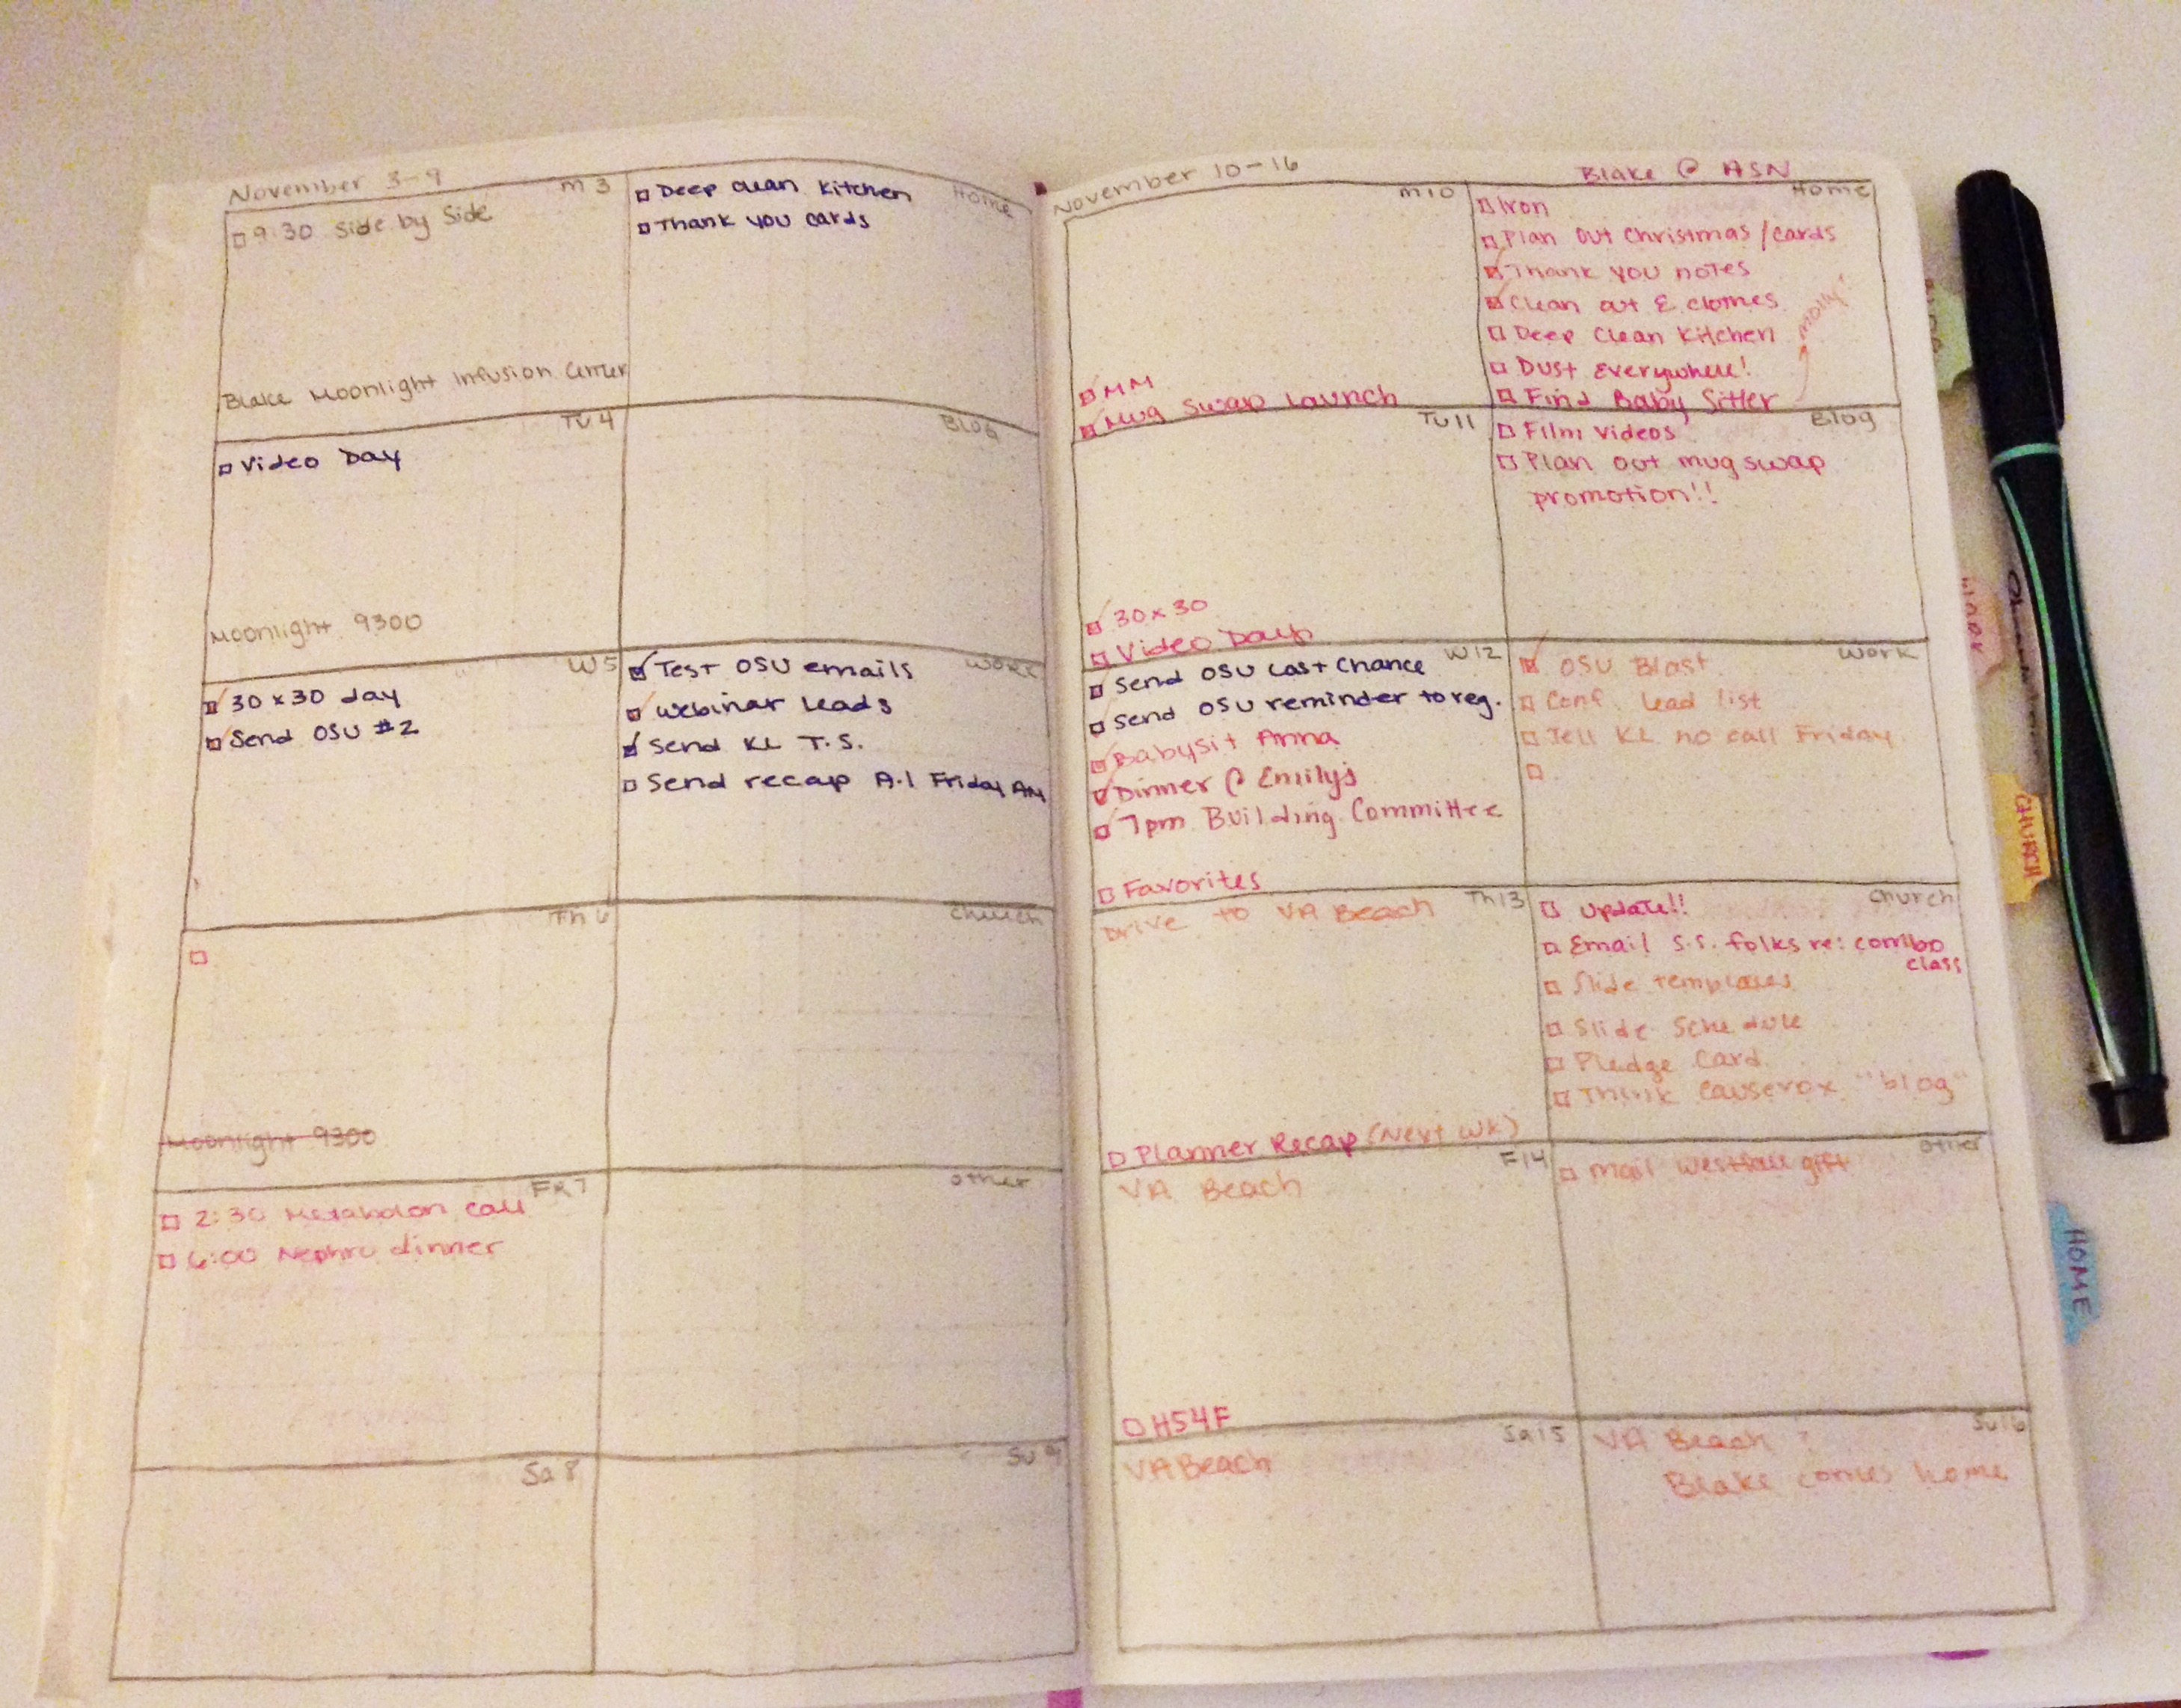 November 3-9
M 3
9:30 Side by Side
Blake Moonlight Infusion Center
Home
Deep clean kitchen
Thank you cards
Tu 4
Video Day
Moonlight 9300
Blog
W 5
30x30 day
Send OSU #2
Work
Test OSU emails
Webinar leads
Send KL T.S.
Send recap A.1 Friday AM
Th 6
Moonlight 9300
Church
FR 7
2:30 Metabolon call
6:00 Nephro dinner
other
Sa 8
Su 9
November 10-16
Blake @ ASN
M10
MM
Mug Swap Launch
Home
Iron
Plan out Christmas/cards
Thank you notes
Clean out E clothes
Deep Clean Kitchen
Dust Everywhere!
Find Baby Sitter
Molly?
Tu 11
30x30
Video Day
Blog
Film videos
Plan out mug swap
promotion!!
W12
Send OSU Last Chance
Send OSU reminder to reg.
Babysit Anna
Dinner @ Emily's
7pm Building Committee
Favorites
Work
OSU Blast
Conf. Lead list
Tell KL no call Friday
Th13
Drive to VA Beach
Planner Recap (Next WK)
Church
Update!!
Email S.S. folks re: combo
class
Slide templates
Slide Schedule
Pledge Card
Think Causevox "blog"
F14
VA Beach
H54F
other
Mail Westfall gift
Sa15
VA Beach
Su16
VA Beach ?
Blake comes home
WORK
CHURCH
HOME